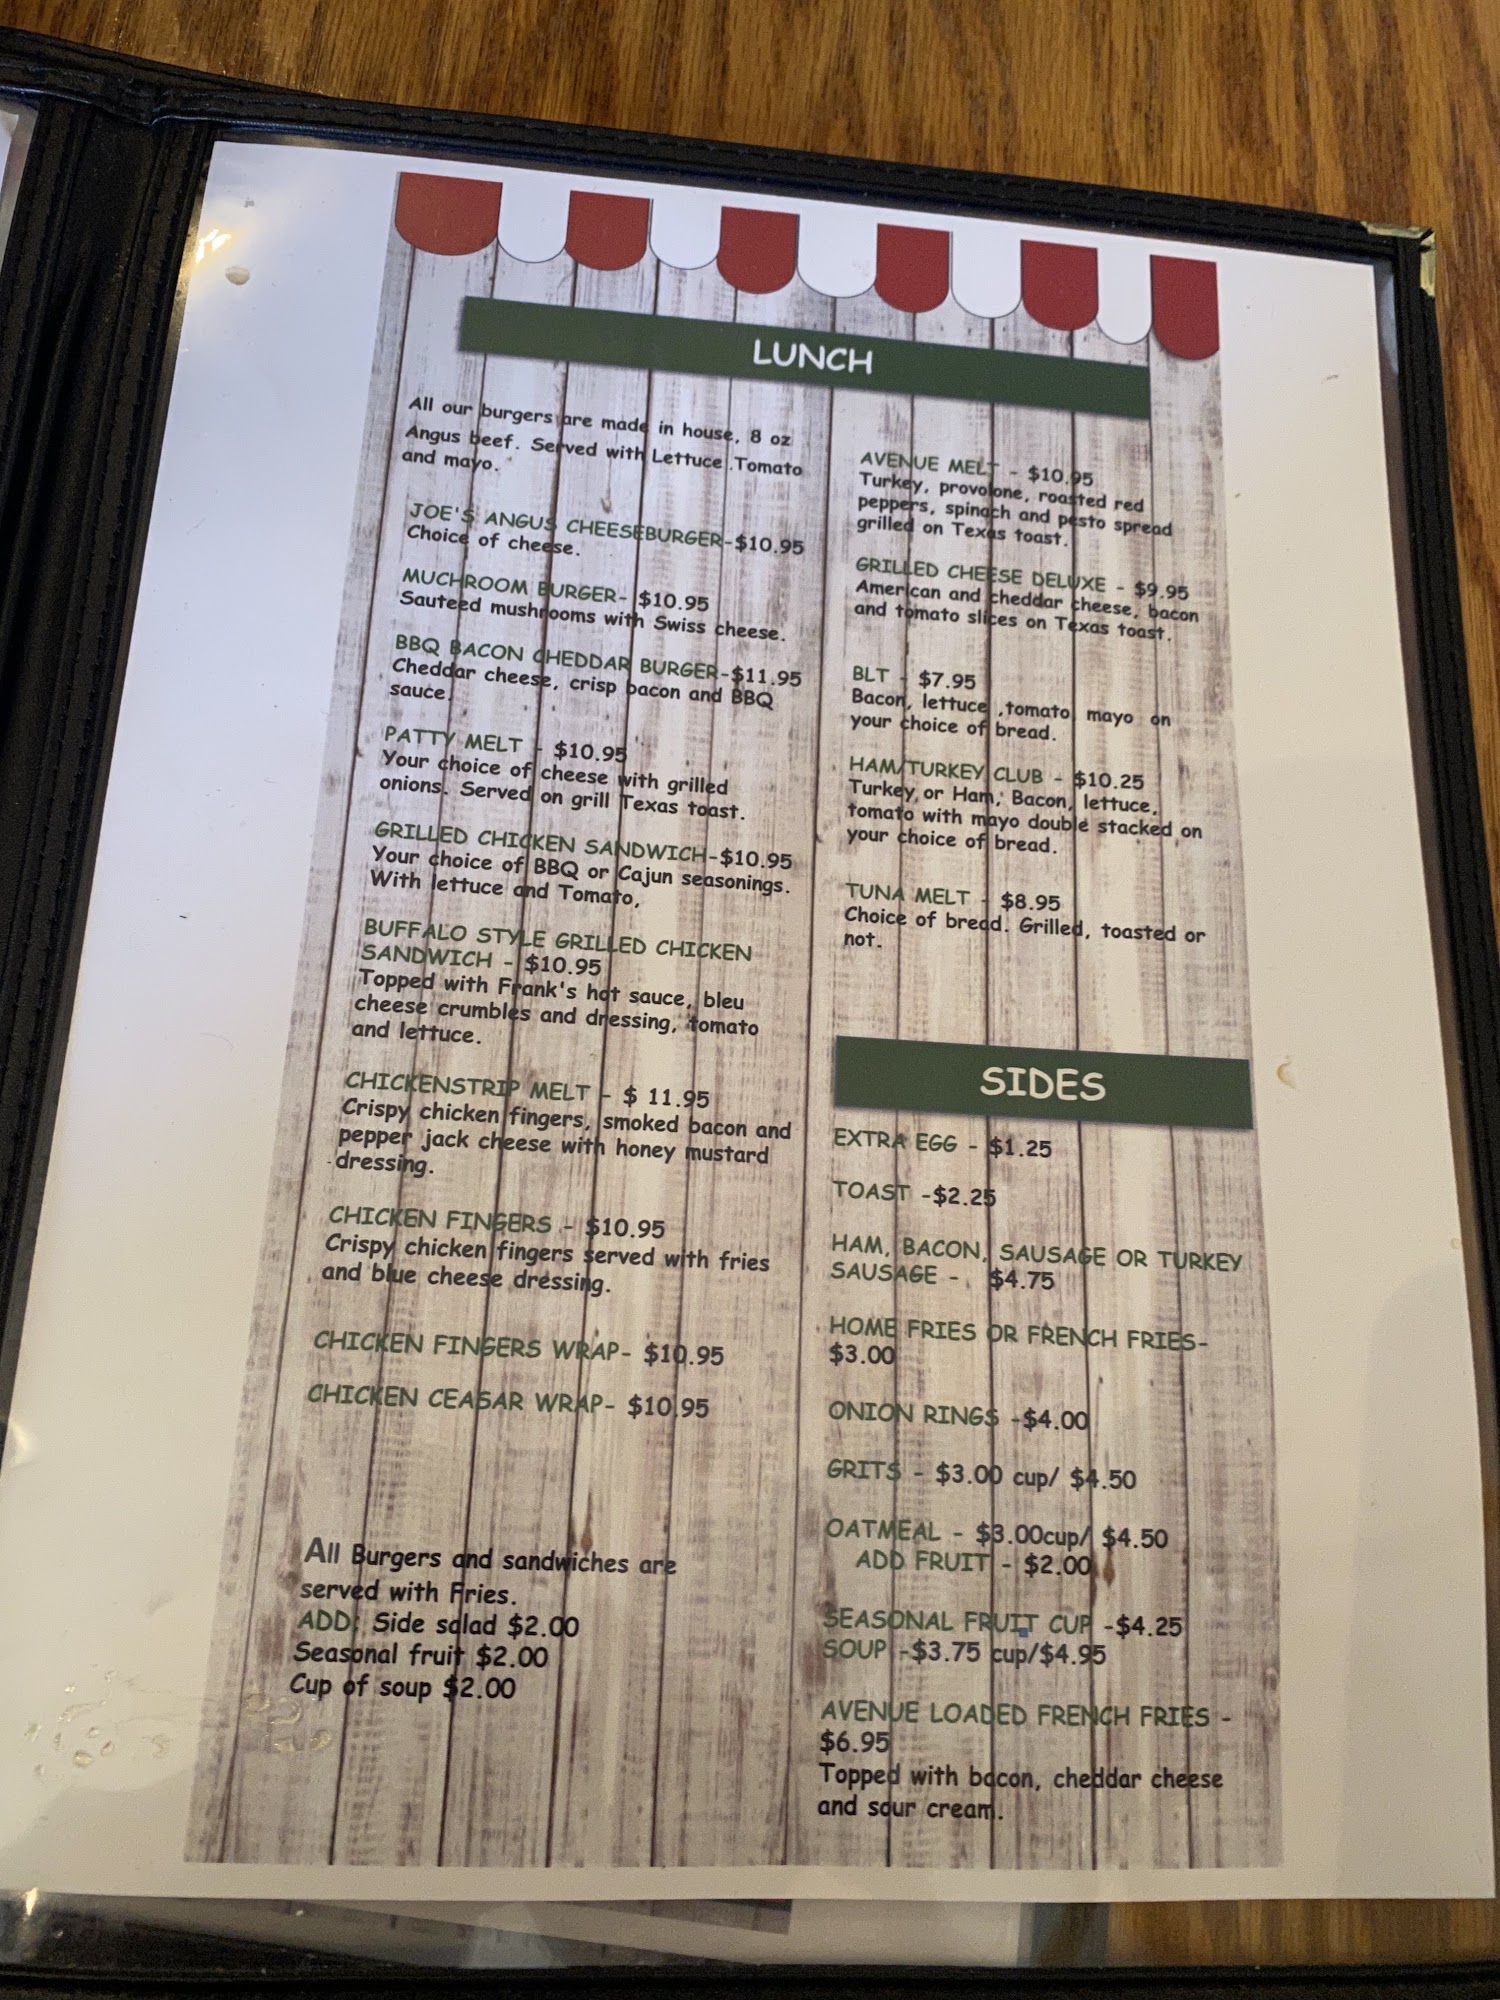 LUNCH
All our burgers are made in house, 8 oz
Angus beef. Served with Lettuce ,Tomato
and mayo.
JOE'S ANGUS CHEESEBURGER-$10.95
Choice of cheese.
MUCHROOM BURGER- $10.95
Sauteed mushrooms with Swiss cheese.
BBQ BACON CHEDDAR BURGER-$11.95
Cheddar cheese, crisp bacon and BBQ
sauce.
PATTY MELT - $10.95
Your choice of cheese with grilled
onions. Served on grill Texas toast.
GRILLED CHICKEN SANDWICH-$10.95
Your choice of BBQ or Cajun seasonings.
With lettuce and Tomato,
BUFFALO STYLE GRILLED CHICKEN
SANDWICH - $10.95
Topped with Frank's hot sauce, bleu
cheese crumbles and dressing, tomato
and lettuce.
CHICKENSTRIP MELT - $ 11.95
Crispy chicken fingers, smoked bacon and
pepper jack cheese with honey mustard
dressing.
CHICKEN FINGERS - $10.95
Crispy chicken fingers served with fries
and blue cheese dressing.
CHICKEN FINGERS WRAP- $10.95
CHICKEN CEASAR WRAP- $10.95
All Burgers and sandwiches are
served with Fries.
ADD: Side salad $2.00
Seasonal fruit $2.00
Cup of soup $2.00
AVENUE MELT - $10.95
Turkey, provolone, roasted red
peppers, spinach and pesto spread
grilled on Texas toast.
GRILLED CHEESE DELUXE - $9.95
American and cheddar cheese, bacon
and tomato slices on Texas toast.
BLT - $7.95
Bacon, lettuce ,tomato, mayo on
your choice of bread.
HAM/TURKEY CLUB - $10.25
Turkey or Ham, Bacon, lettuce,
tomato with mayo double stacked on
your choice of bread.
TUNA MELT - $8.95
Choice of bread. Grilled, toasted or
not.
SIDES
EXTRA EGG - $1.25
TOAST -$2.25
HAM, BACON, SAUSAGE OR TURKEY
SAUSAGE - $4.75
HOME FRIES OR FRENCH FRIES-
$3.00
ONION RINGS -$4.00
GRITS - $3.00 cup/ $4.50
OATMEAL - $3.00cup/ $4.50
ADD FRUIT - $2.00
SEASONAL FRUIT CUP -$4.25
SOUP -$3.75 cup/$4.95
AVENUE LOADED FRENCH FRIES -
$6.95
Topped with bacon, cheddar cheese
and sour cream.